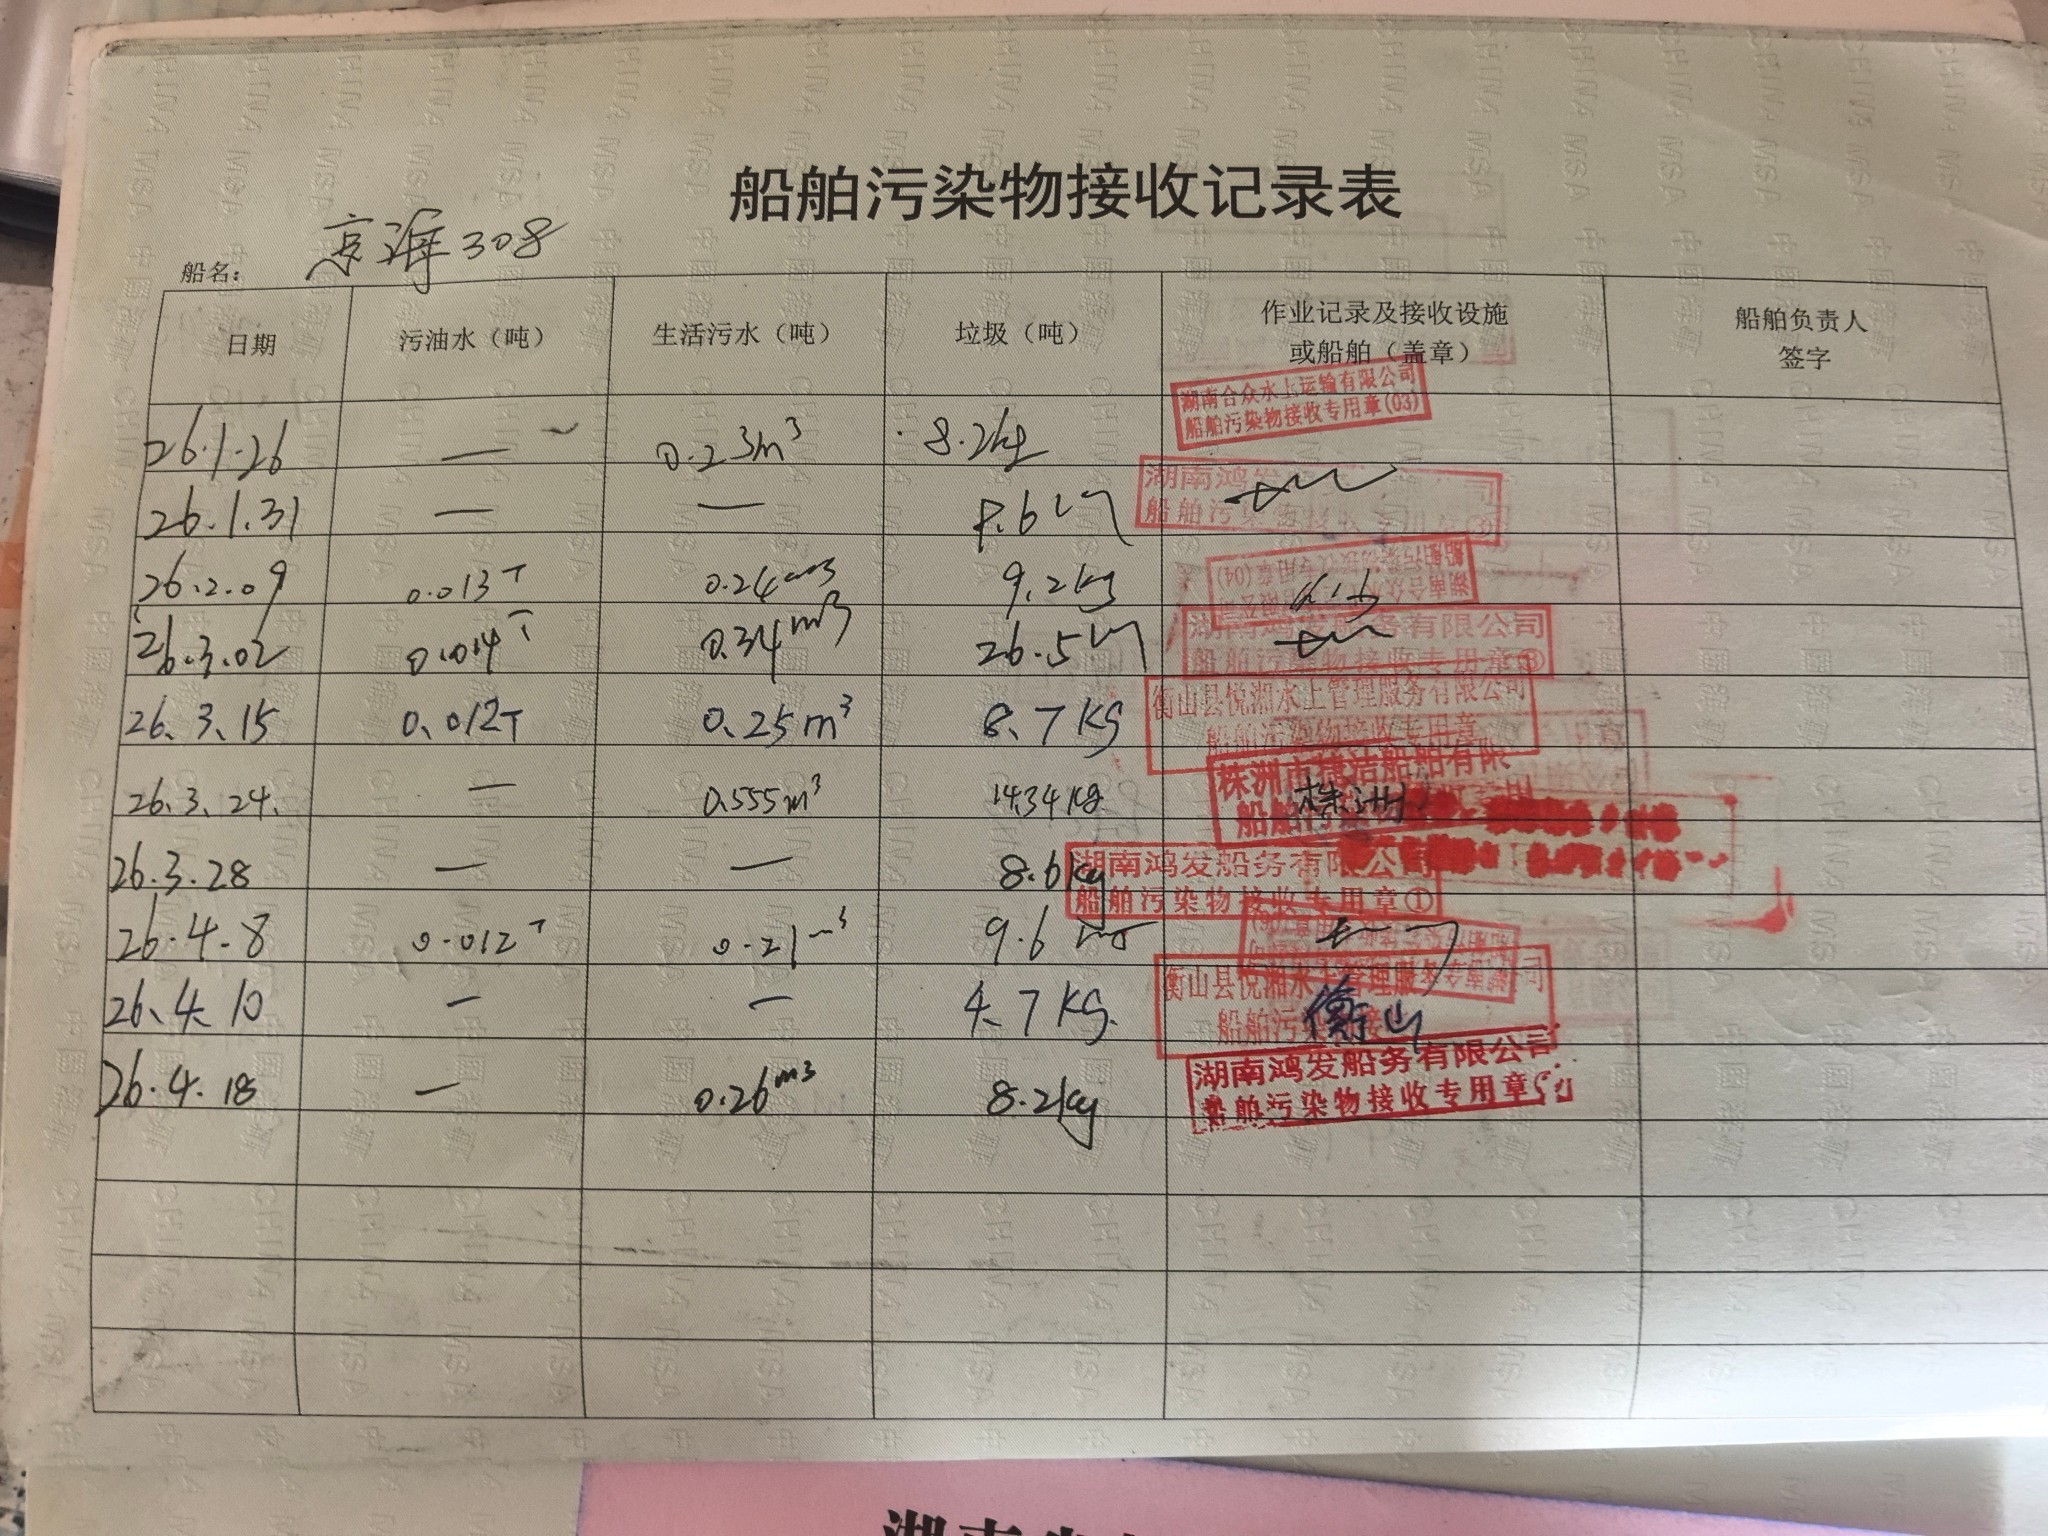 船舶污染物接收记录表
船名： 京海308
日期 污油水（吨） 生活污水（吨） 垃圾（吨） 作业记录及接收设施或船舶（盖章） 船舶负责人签字
湖南合众水上运输有限公司
船舶污染物接收专用章(03)
26.1.26 — 0.23m³ 8.2kg
湖南鸿发
船舶污染物接收专用章③
26.1.31 — — 8.6
船舶污染物接收专用章(04)
26.2.09 0.013T 0.24m3 9.2kg
湖南鸿发船务有限公司
船舶污染物接收专用章③
26.3.02 0.014T 0.34m3 26.5
衡山县悦湘水上管理服务有限公司
船舶污染物接收专用章
26、3、15 0、012T 0.25m³ 8、7KG
株洲市捷洁船舶有限
船舶污染物
26.3.24. — 0.555m³ 14.34kg 株洲
湖南鸿发船务有限公司
船舶污染物接收专用章①
26.3.28 — — 8.6kg
26.4.8 0.012T 0.21m³ 9.6
衡山县悦湘水上管理服务有限公司
船舶污染物接
26、4、10 — — 4、7KG. 衡山
湖南鸿发船务有限公司
船舶污染物接收专用章
26.4.18 — 0.26m3 8.2kg
CHINA MSA
中國海事